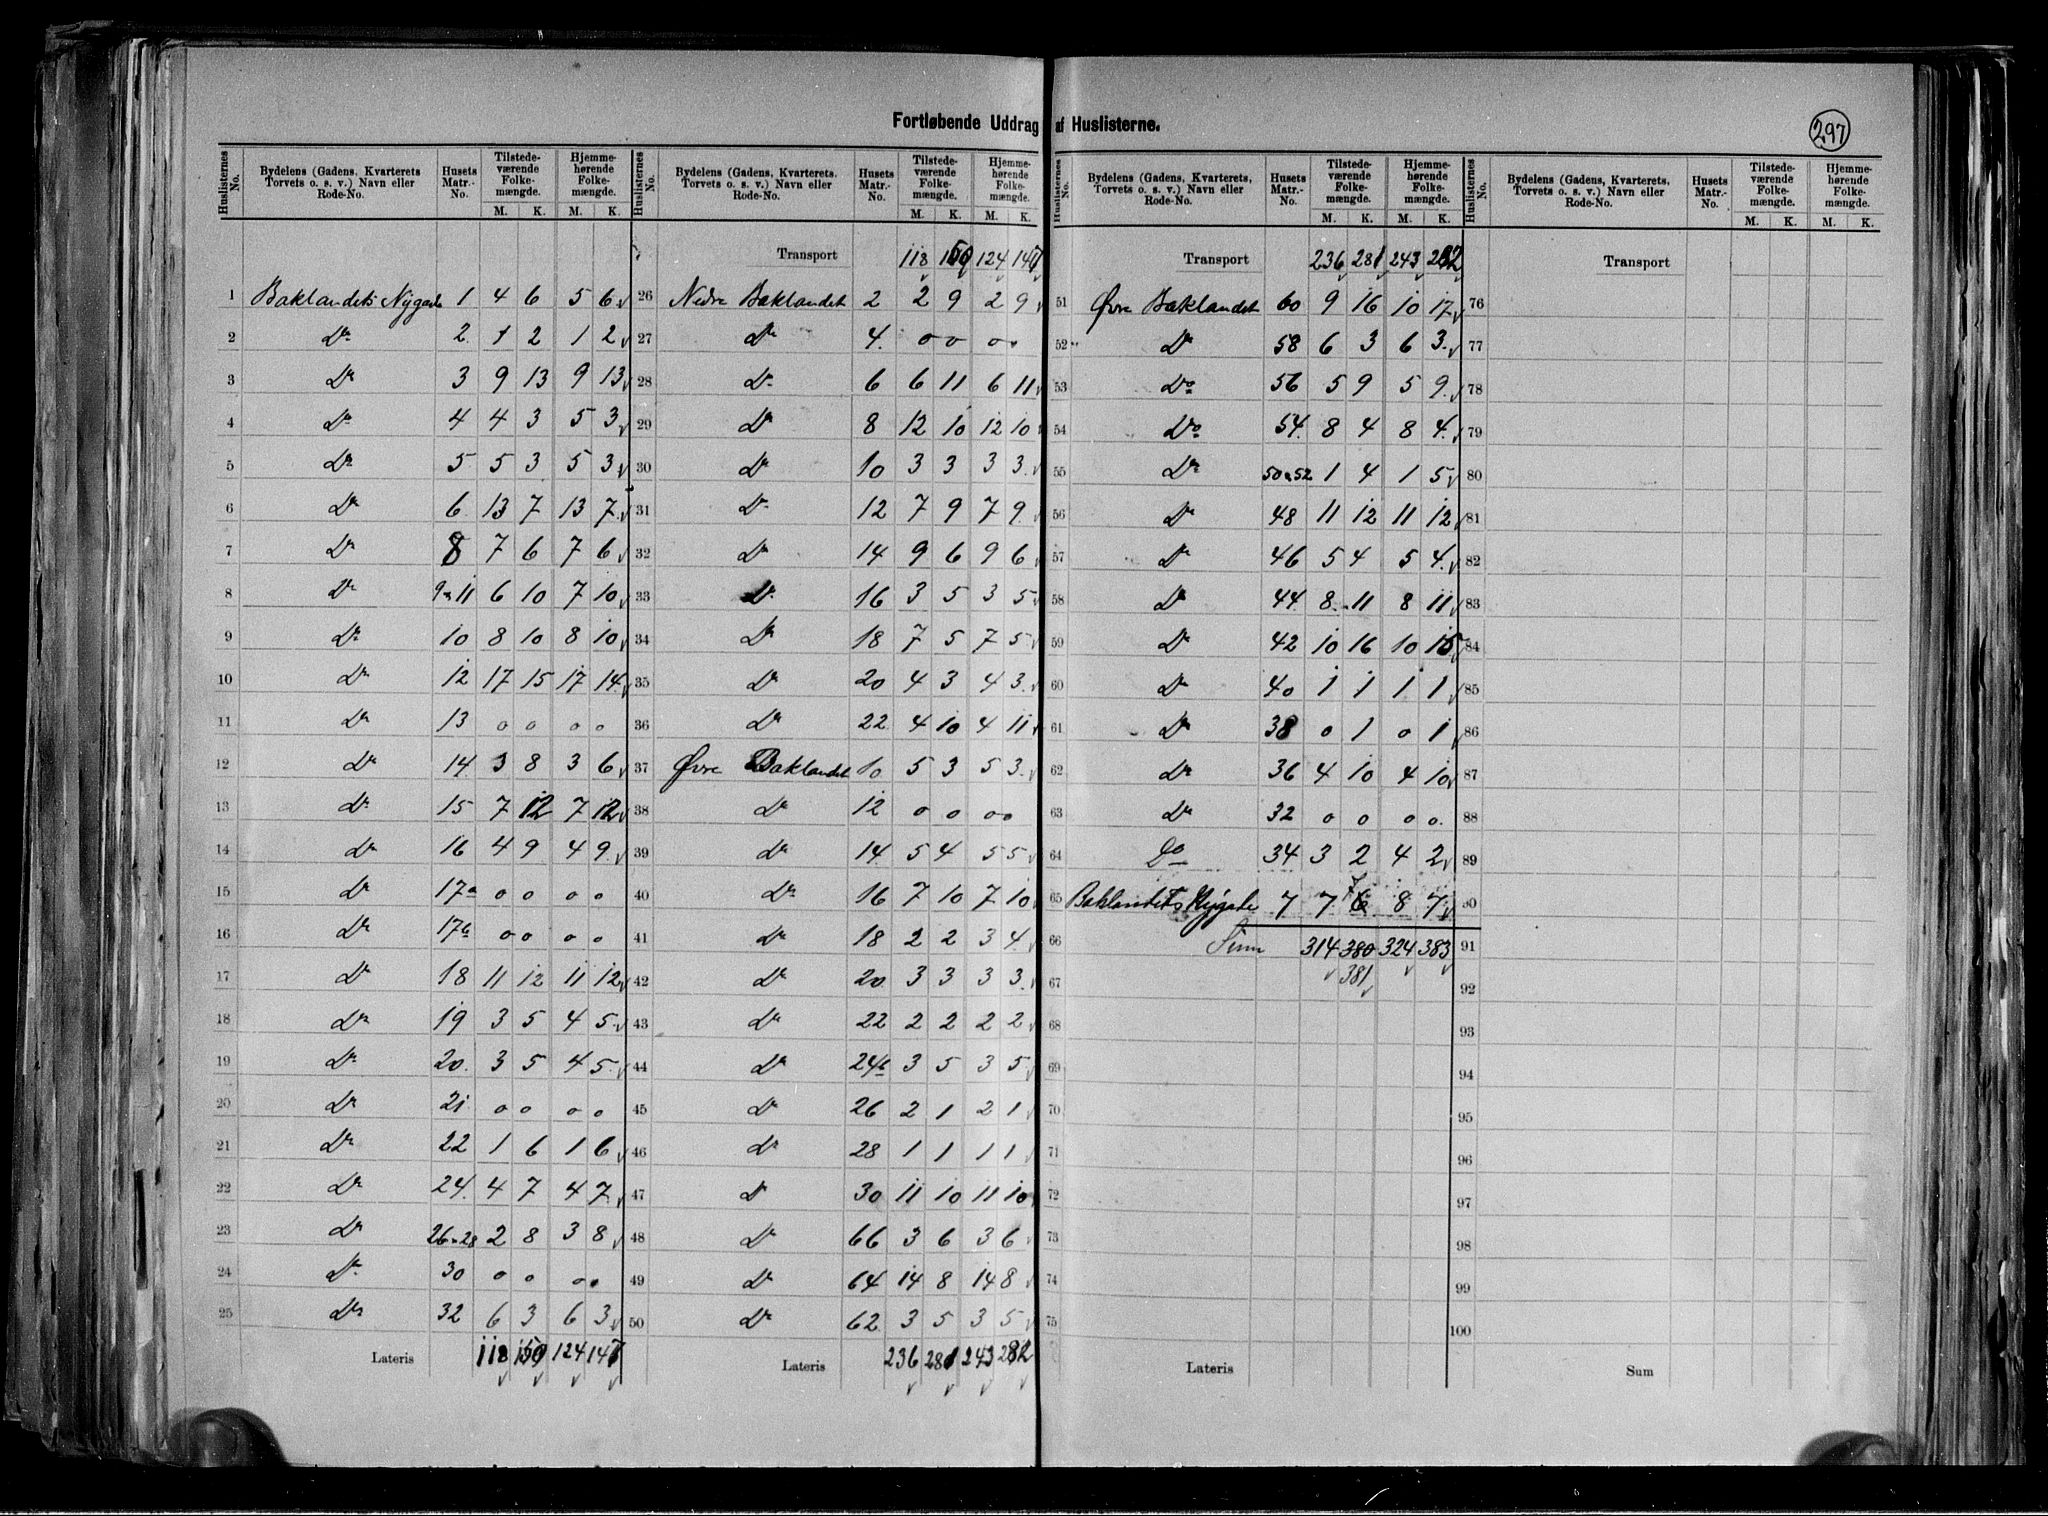 Fortløbende Uddrag af Huslisterne.
297
Huslisternes No. Bydelens (Gadens, Kvarterets, Torvets o. s. v.) Navn eller Rode-No. Husets Matr.-No. Tilstede-værende Folke-mængde. M. K. Hjemme-hørende Folke-mængde. M. K.
1 Baklandets Nygade 1 4 6 5 6
2 Do 2 1 2 1 2
3 Do 3 9 13 9 13
4 Do 4 4 3 5 3
5 Do 5 5 3 5 3
6 Do 6 13 7 13 7
7 Do 8 7 6 7 6
8 Do 9 & 11 6 10 7 10
9 Do 10 8 10 8 10
10 Do 12 17 15 17 14
11 Do 13 0 0 0 0
12 Do 14 3 8 3 6
13 Do 15 7 12 7 12
14 Do 16 4 9 4 9
15 Do 17a 0 0 0 0
16 Do 17b 0 0 0 0
17 Do 18 11 12 11 12
18 Do 19 3 5 4 5
19 Do 20 3 5 4 5
20 Do 21 0 0 0 0
21 Do 22 1 6 1 6
22 Do 24 4 7 4 7
23 Do 26 & 28 2 8 3 8
24 Do 30 0 0 0 0
25 Do 32 6 3 6 3
Lateris 118 150 124 147
Huslisternes No. Bydelens (Gadens, Kvarterets, Torvets o. s. v.) Navn eller Rode-No. Husets Matr.-No. Tilstede-værende Folke-mængde. M. K. Hjemme-hørende Folke-mængde. M. K.
Transport 118 150 124 147
26 Nedre Baklandet 2 2 9 2 9
27 Do 4 0 0 0 0
28 Do 6 6 11 6 11
29 Do 8 12 10 12 10
30 Do 10 3 3 3 3
31 Do 12 7 9 7 9
32 Do 14 9 6 9 6
33 Do 16 3 5 3 5
34 Do 18 7 5 7 5
35 Do 20 4 3 4 3
36 Do 22 4 10 4 11
37 Øvre Baklandet 10 5 3 5 3
38 Do 12 0 0 0 0
39 Do 14 5 4 5 5
40 Do 16 7 10 7 10
41 Do 18 2 2 3 4
42 Do 20 3 3 3 3
43 Do 22 2 2 2 2
44 Do 24b 3 5 3 5
45 Do 26 2 1 2 1
46 Do 28 1 1 1 1
47 Do 30 11 10 11 10
48 Do 66 3 6 3 6
49 Do 64 14 8 14 8
50 Do 62 3 5 3 5
Lateris 236 281 243 282
Huslisternes No. Bydelens (Gadens, Kvarterets, Torvets o. s. v.) Navn eller Rode-No. Husets Matr.-No. Tilstede-værende Folke-mængde. M. K. Hjemme-hørende Folke-mængde. M. K.
Transport 236 281 243 282
51 Øvre Baklandet 60 9 16 10 17
52 Do 58 6 3 6 3
53 Do 56 5 9 5 9
54 Do 54 8 4 8 4
55 Do 50 & 52 1 4 1 5
56 Do 48 11 12 11 12
57 Do 46 5 4 5 4
58 Do 44 8 11 8 11
59 Do 42 10 16 10 15
60 Do 40 1 1 1 1
61 Do 38 0 1 0 1
62 Do 36 4 10 4 10
63 Do 32 0 0 0 0
64 Do 34 3 2 4 2
65 Baklandets Nygade 7 7 7 6 8 7
66 Sum 314 380 324 383
67 381
68
69
70
71
72
73
74
75
Lateris
Huslisternes No. Bydelens (Gadens, Kvarterets, Torvets o. s. v.) Navn eller Rode-No. Husets Matr.-No. Tilstede-værende Folke-mængde. M. K. Hjemme-hørende Folke-mængde. M. K.
Transport
76
77
78
79
80
81
82
83
84
85
86
87
88
89
90
91
92
93
94
95
96
97
98
99
100
Sum